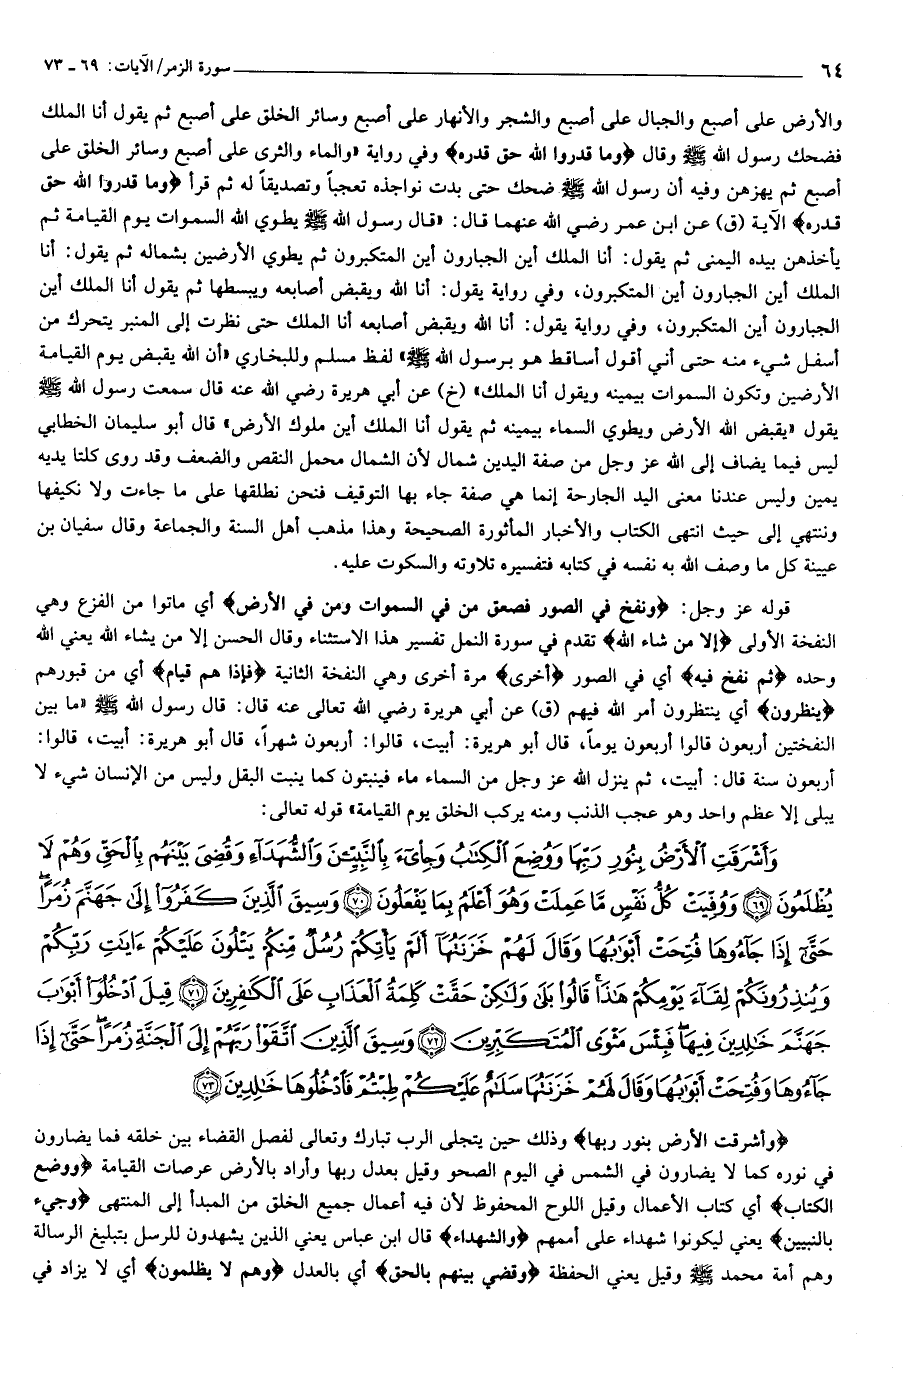 ٦٤ سورة الزمر/ الآيات: ٦٩ ـ ٧٣
والأرض على أصبع والجبال على أصبع والشجر والأنهار على أصبع وسائر الخلق على أصبع ثم يقول أنا الملك
فضحك رسول الله ﷺ وقال ﴿وما قدروا الله حق قدره﴾ وفي رواية «والماء والثرى على أصبع وسائر الخلق على
أصبع ثم يهزهن وفيه أن رسول الله ﷺ ضحك حتى بدت نواجذه تعجباً وتصديقاً له ثم قرأ ﴿وما قدروا الله حق
قدره﴾ الآية (ق) عن ابن عمر رضي الله عنهما قال: «قال رسول الله ﷺ يطوي الله السموات يوم القيامة ثم
يأخذهن بيده اليمنى ثم يقول: أنا الملك أين الجبارون أين المتكبرون ثم يطوي الأرضين بشماله ثم يقول: أنا
الملك أين الجبارون أين المتكبرون، وفي رواية يقول: أنا الله ويقبض أصابعه ويبسطها ثم يقول أنا الملك أين
الجبارون أين المتكبرون، وفي رواية يقول: أنا الله ويقبض أصابعه أنا الملك حتى نظرت إلى المنبر يتحرك من
أسفل شيء منه حتى أني أقول أساقط هو برسول الله ﷺ» لفظ مسلم وللبخاري «أن الله يقبض يوم القيامة
الأرضين وتكون السموات بيمينه ويقول أنا الملك» (خ) عن أبي هريرة رضي الله عنه قال سمعت رسول الله ﷺ
يقول «يقبض الله الأرض ويطوي السماء بيمينه ثم يقول أنا الملك أين ملوك الأرض» قال أبو سليمان الخطابي
ليس فيما يضاف إلى الله عز وجل من صفة اليدين شمال لأن الشمال محمل النقص والضعف وقد روى كلتا يديه
يمين وليس عندنا معنى اليد الجارحة إنما هي صفة جاء بها التوقيف فنحن نطلقها على ما جاءت ولا نكيفها
وننتهي إلى حيث انتهى الكتاب والأخبار المأثورة الصحيحة وهذا مذهب أهل السنة والجماعة وقال سفيان بن
عيينة كل ما وصف الله به نفسه في كتابه فتفسيره تلاوته والسكوت عليه.
قوله عز وجل: ﴿ونفخ في الصور فصعق من في السموات ومن في الأرض﴾ أي ماتوا من الفزع وهي
النفخة الأولى ﴿إلا من شاء الله﴾ تقدم في سورة النمل تفسير هذا الاستثناء وقال الحسن إلا من يشاء الله يعني الله
وحده ﴿ثم نفخ فيه﴾ أي في الصور ﴿أخرى﴾ مرة أخرى وهي النفخة الثانية ﴿فإذا هم قيام﴾ أي من قبورهم
﴿ينظرون﴾ أي ينتظرون أمر الله فيهم (ق) عن أبي هريرة رضي الله تعالى عنه قال: قال رسول الله ﷺ «ما بين
النفختين أربعون قالوا أربعون يوماً، قال أبو هريرة: أبيت، قالوا: أربعون شهراً، قال أبو هريرة: أبيت، قالوا:
أربعون سنة قال: أبيت، ثم ينزل الله عز وجل من السماء ماء فينبتون كما ينبت البقل وليس من الإنسان شيء لا
يبلى إلا عظم واحد وهو عجب الذنب ومنه يركب الخلق يوم القيامة» قوله تعالى:
وَأَشْرَقَتِ ٱلْأَرْضُ بِنُورِ رَبِّهَا وَوُضِعَ ٱلْكِتَٰبُ وَجِا۟ىٓءَ بِٱلنَّبِيِّـۧنَ وَٱلشُّهَدَآءِ وَقُضِىَ بَيْنَهُم بِٱلْحَقِّ وَهُمْ لَا
يُظْلَمُونَ ﴿٦٩﴾ وَوُفِّيَتْ كُلُّ نَفْسٍ مَّا عَمِلَتْ وَهُوَ أَعْلَمُ بِمَا يَفْعَلُونَ ﴿٧٠﴾ وَسِيقَ ٱلَّذِينَ كَفَرُوٓا۟ إِلَىٰ جَهَنَّمَ زُمَرًا ۖ
حَتَّىٰٓ إِذَا جَآءُوهَا فُتِحَتْ أَبْوَٰبُهَا وَقَالَ لَهُمْ خَزَنَتُهَآ أَلَمْ يَأْتِكُمْ رُسُلٌ مِّنكُمْ يَتْلُونَ عَلَيْكُمْ ءَايَٰتِ رَبِّكُمْ
وَيُنذِرُونَكُمْ لِقَآءَ يَوْمِكُمْ هَٰذَا ۚ قَالُوا۟ بَلَىٰ وَلَٰكِنْ حَقَّتْ كَلِمَةُ ٱلْعَذَابِ عَلَى ٱلْكَٰفِرِينَ ﴿٧١﴾ قِيلَ ٱدْخُلُوٓا۟ أَبْوَٰبَ
جَهَنَّمَ خَٰلِدِينَ فِيهَا ۖ فَبِئْسَ مَثْوَى ٱلْمُتَكَبِّرِينَ ﴿٧٢﴾ وَسِيقَ ٱلَّذِينَ ٱتَّقَوْا۟ رَبَّهُمْ إِلَى ٱلْجَنَّةِ زُمَرًا ۖ حَتَّىٰٓ إِذَا
جَآءُوهَا وَفُتِحَتْ أَبْوَٰبُهَا وَقَالَ لَهُمْ خَزَنَتُهَا سَلَٰمٌ عَلَيْكُمْ طِبْتُمْ فَٱدْخُلُوهَا خَٰلِدِينَ ﴿٧٣﴾
﴿وأشرقت الأرض بنور ربها﴾ وذلك حين يتجلى الرب تبارك وتعالى لفصل القضاء بين خلقه فما يضارون
في نوره كما لا يضارون في الشمس في اليوم الصحو وقيل بعدل ربها وأراد بالأرض عرصات القيامة ﴿ووضع
الكتاب﴾ أي كتاب الأعمال وقيل اللوح المحفوظ لأن فيه أعمال جميع الخلق من المبدأ إلى المنتهى ﴿وجيء
بالنبيين﴾ يعني ليكونوا شهداء على أممهم ﴿والشهداء﴾ قال ابن عباس يعني الذين يشهدون للرسل بتبليغ الرسالة
وهم أمة محمد ﷺ وقيل يعني الحفظة ﴿وقضي بينهم بالحق﴾ أي بالعدل ﴿وهم لا يظلمون﴾ أي لا يزاد في